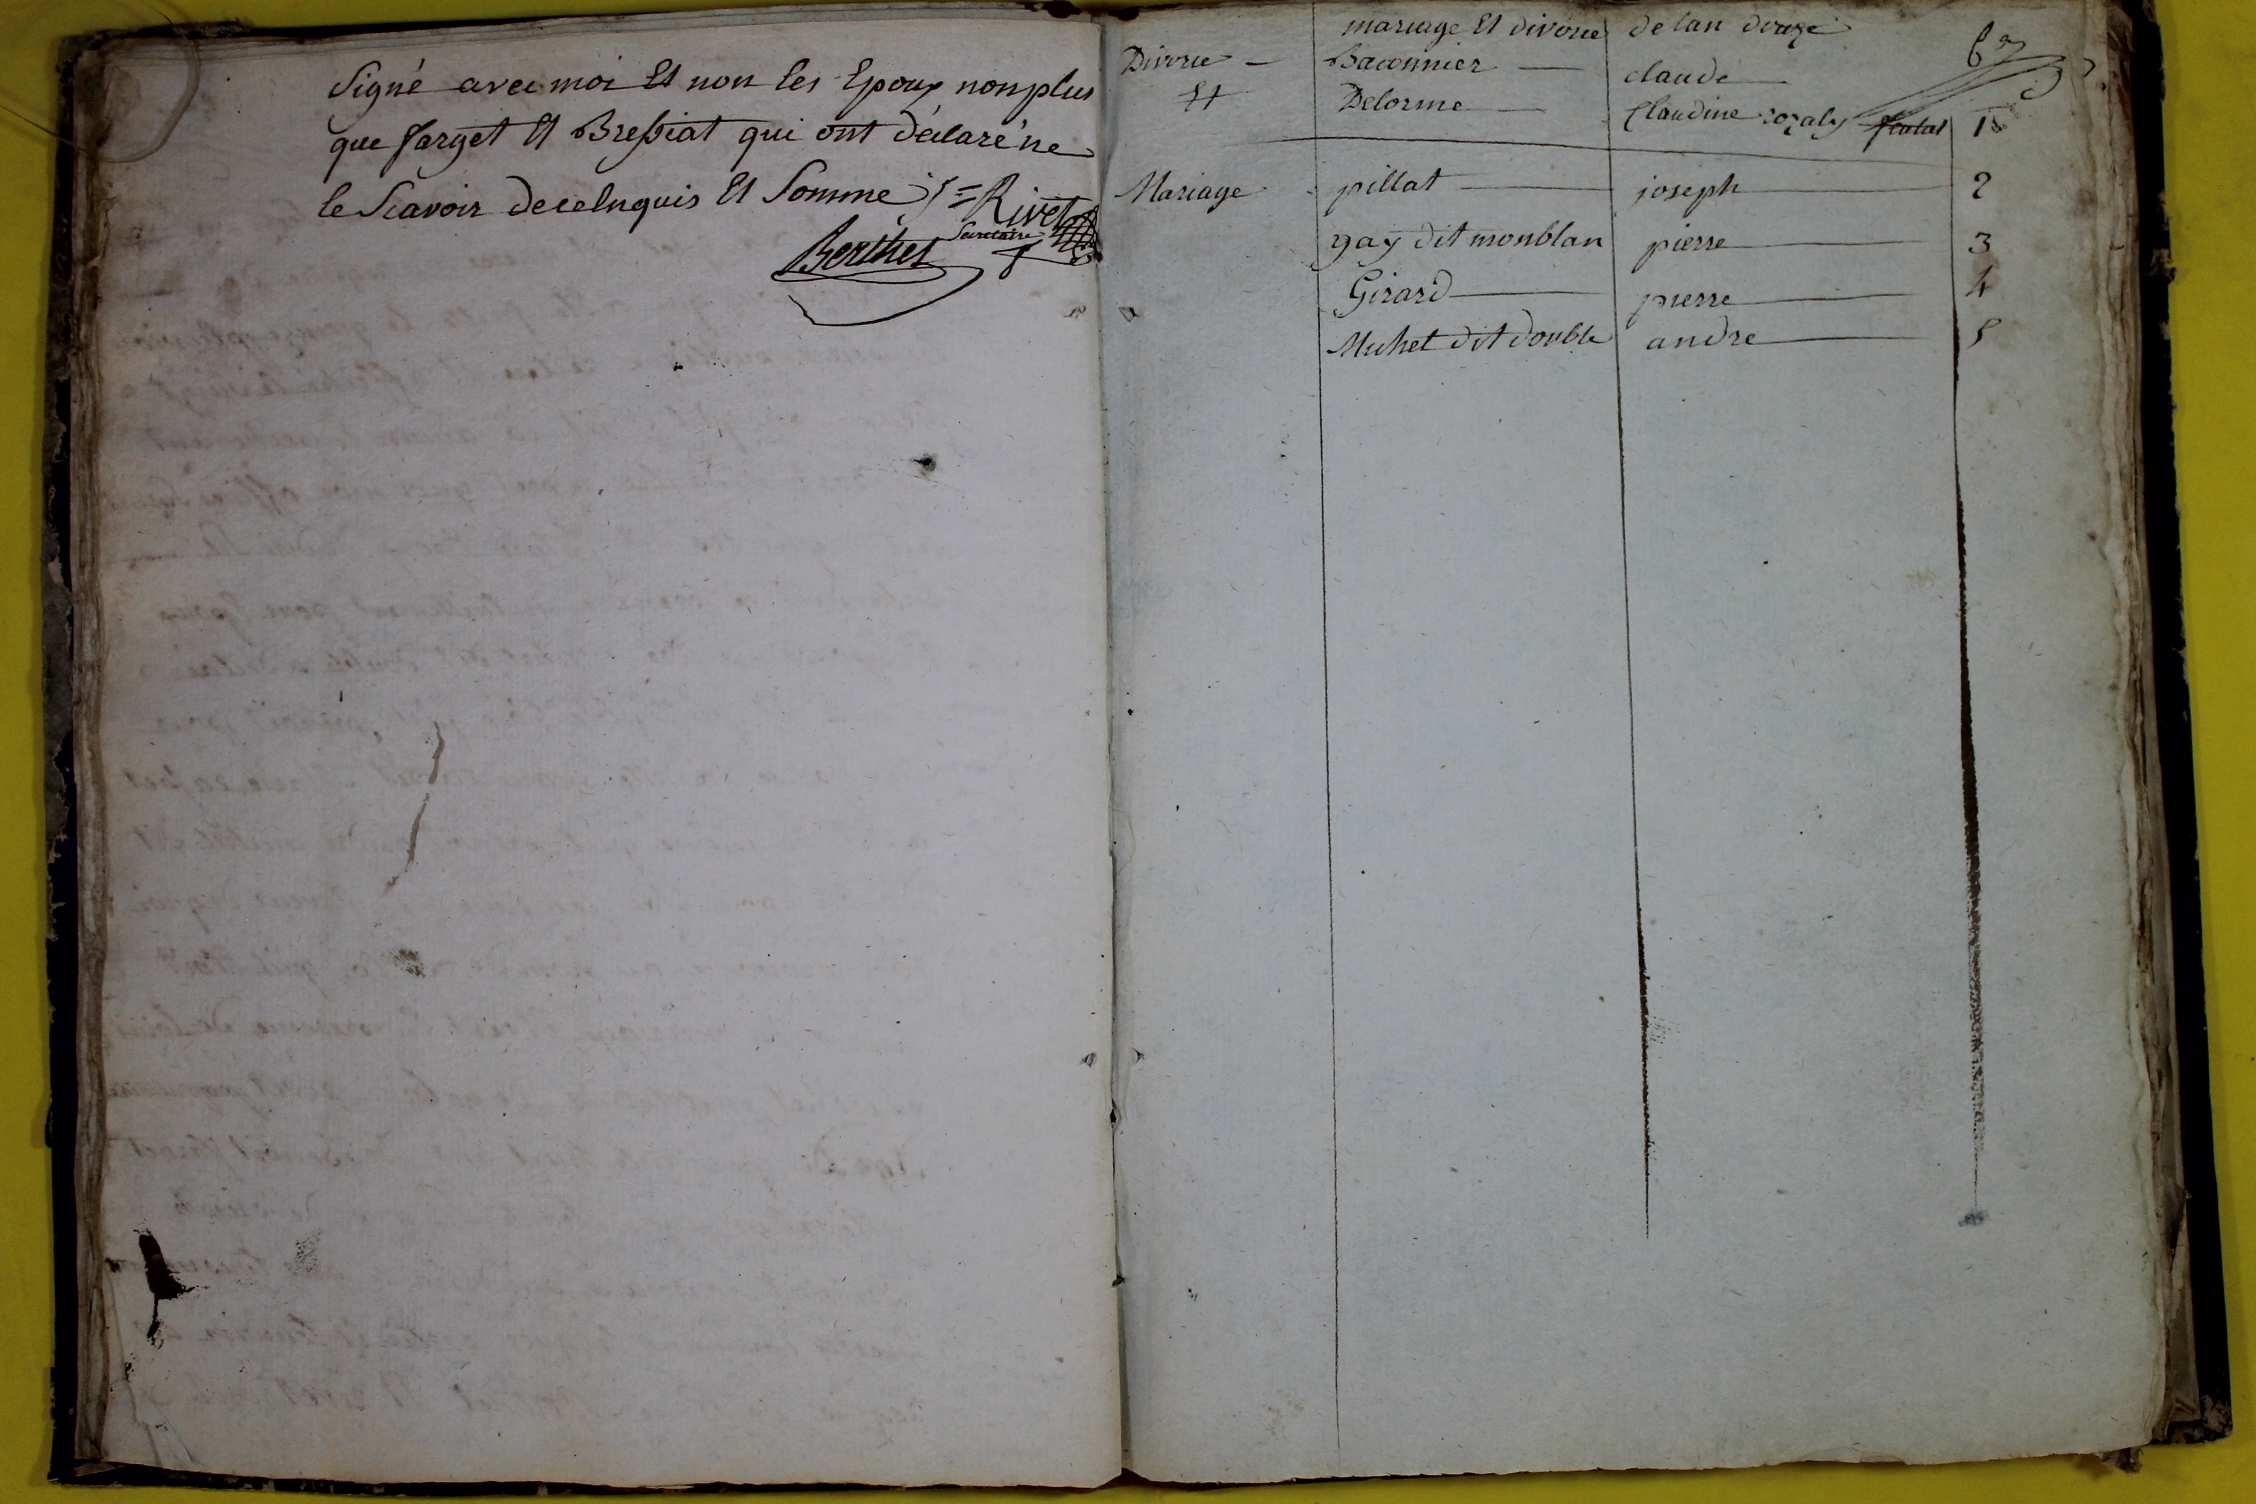 Signé avec moi Et non les Epoux nonplus
que farget Et Bressiat qui ont déclaré ne
le Scavoir de ce Enquis Et Sommé
Rivet
Secretaire
Berthet
mariage Et divorce de lan douze
Divorce - Baconnier - claude
Et Delorme - Claudine rozaly 1
Mariage pillat - joseph - 2
gay dit monblan pierre - 3
Girard - pierre - 4
Michet dit double andre - 5